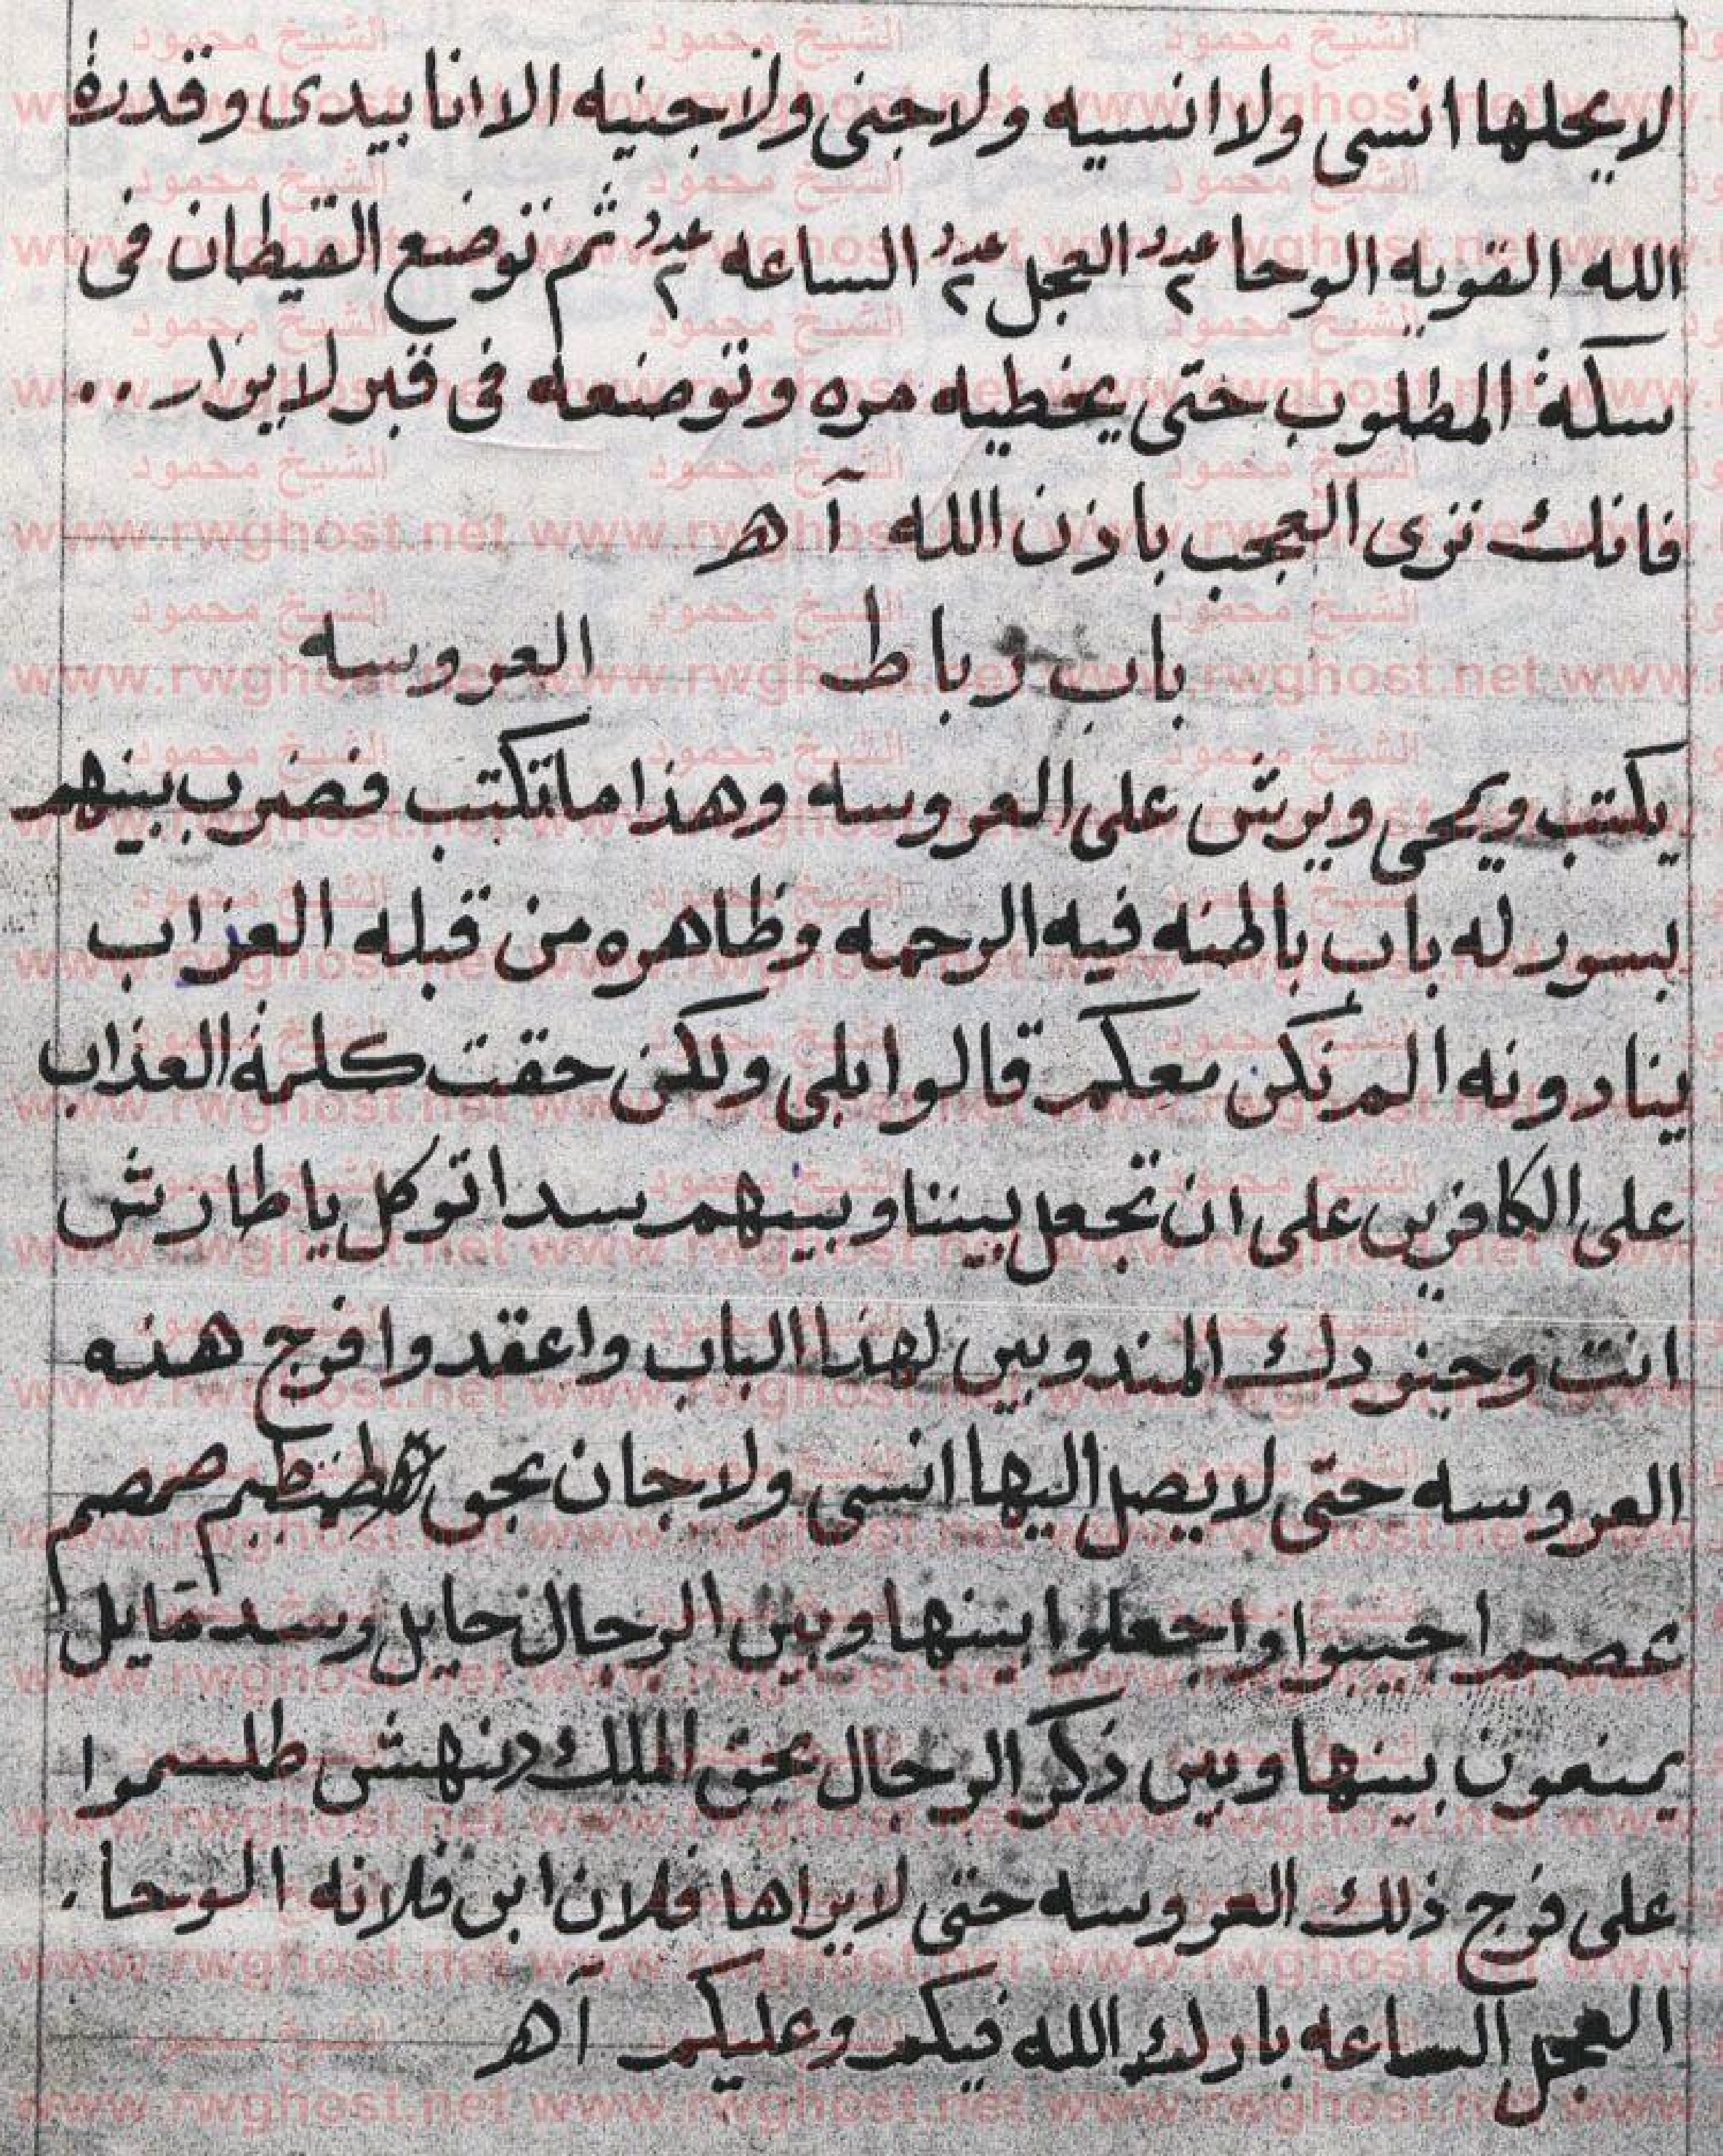 لا يحلها انسى ولا انسيه ولا جنى ولا جنيه الا انا بيدى وقدرة
الله القويه الوحا عدد ٢ العجل عدد ٢ الساعه عدد ٢ ثم توضع القيطان فى
سكة المطلوب حتى يخطيه مره وتوضعه فى قبر لا يزار ..
فانك ترى العجب باذن الله آ هـ
باب رباط العروسه
يكتب ويمحى ويرش على العروسه وهذا ما تكتب فضرب بينهم
بسور له باب باطنه فيه الرحمه وظاهره من قبله العذاب
ينادونه الم نكن معكم قالوا بلى ولكن حقت كلمة العذاب
على الكافرين على ان تجعل بيننا وبينهم سدا توكل يا طارش
انت وجنودك المندوبين لهذا الباب واعقدوا فرج هذه
العروسه حتى لا يصل اليها انسى ولا جان بحق صمصم
اجيبوا واجعلوا بينها وبين الرجال حايل وسد مايل
يمنعون بينها وبين ذكر الرجال بحق الملك دنهش طلسموا
على فرج ذلك العروسه حتى لا يراها فلان ابن فلانه الوحا .
العجل الساعه بارك الله فيكم وعليكم آ هـ
الشيخ محمود
www.rwghost.net